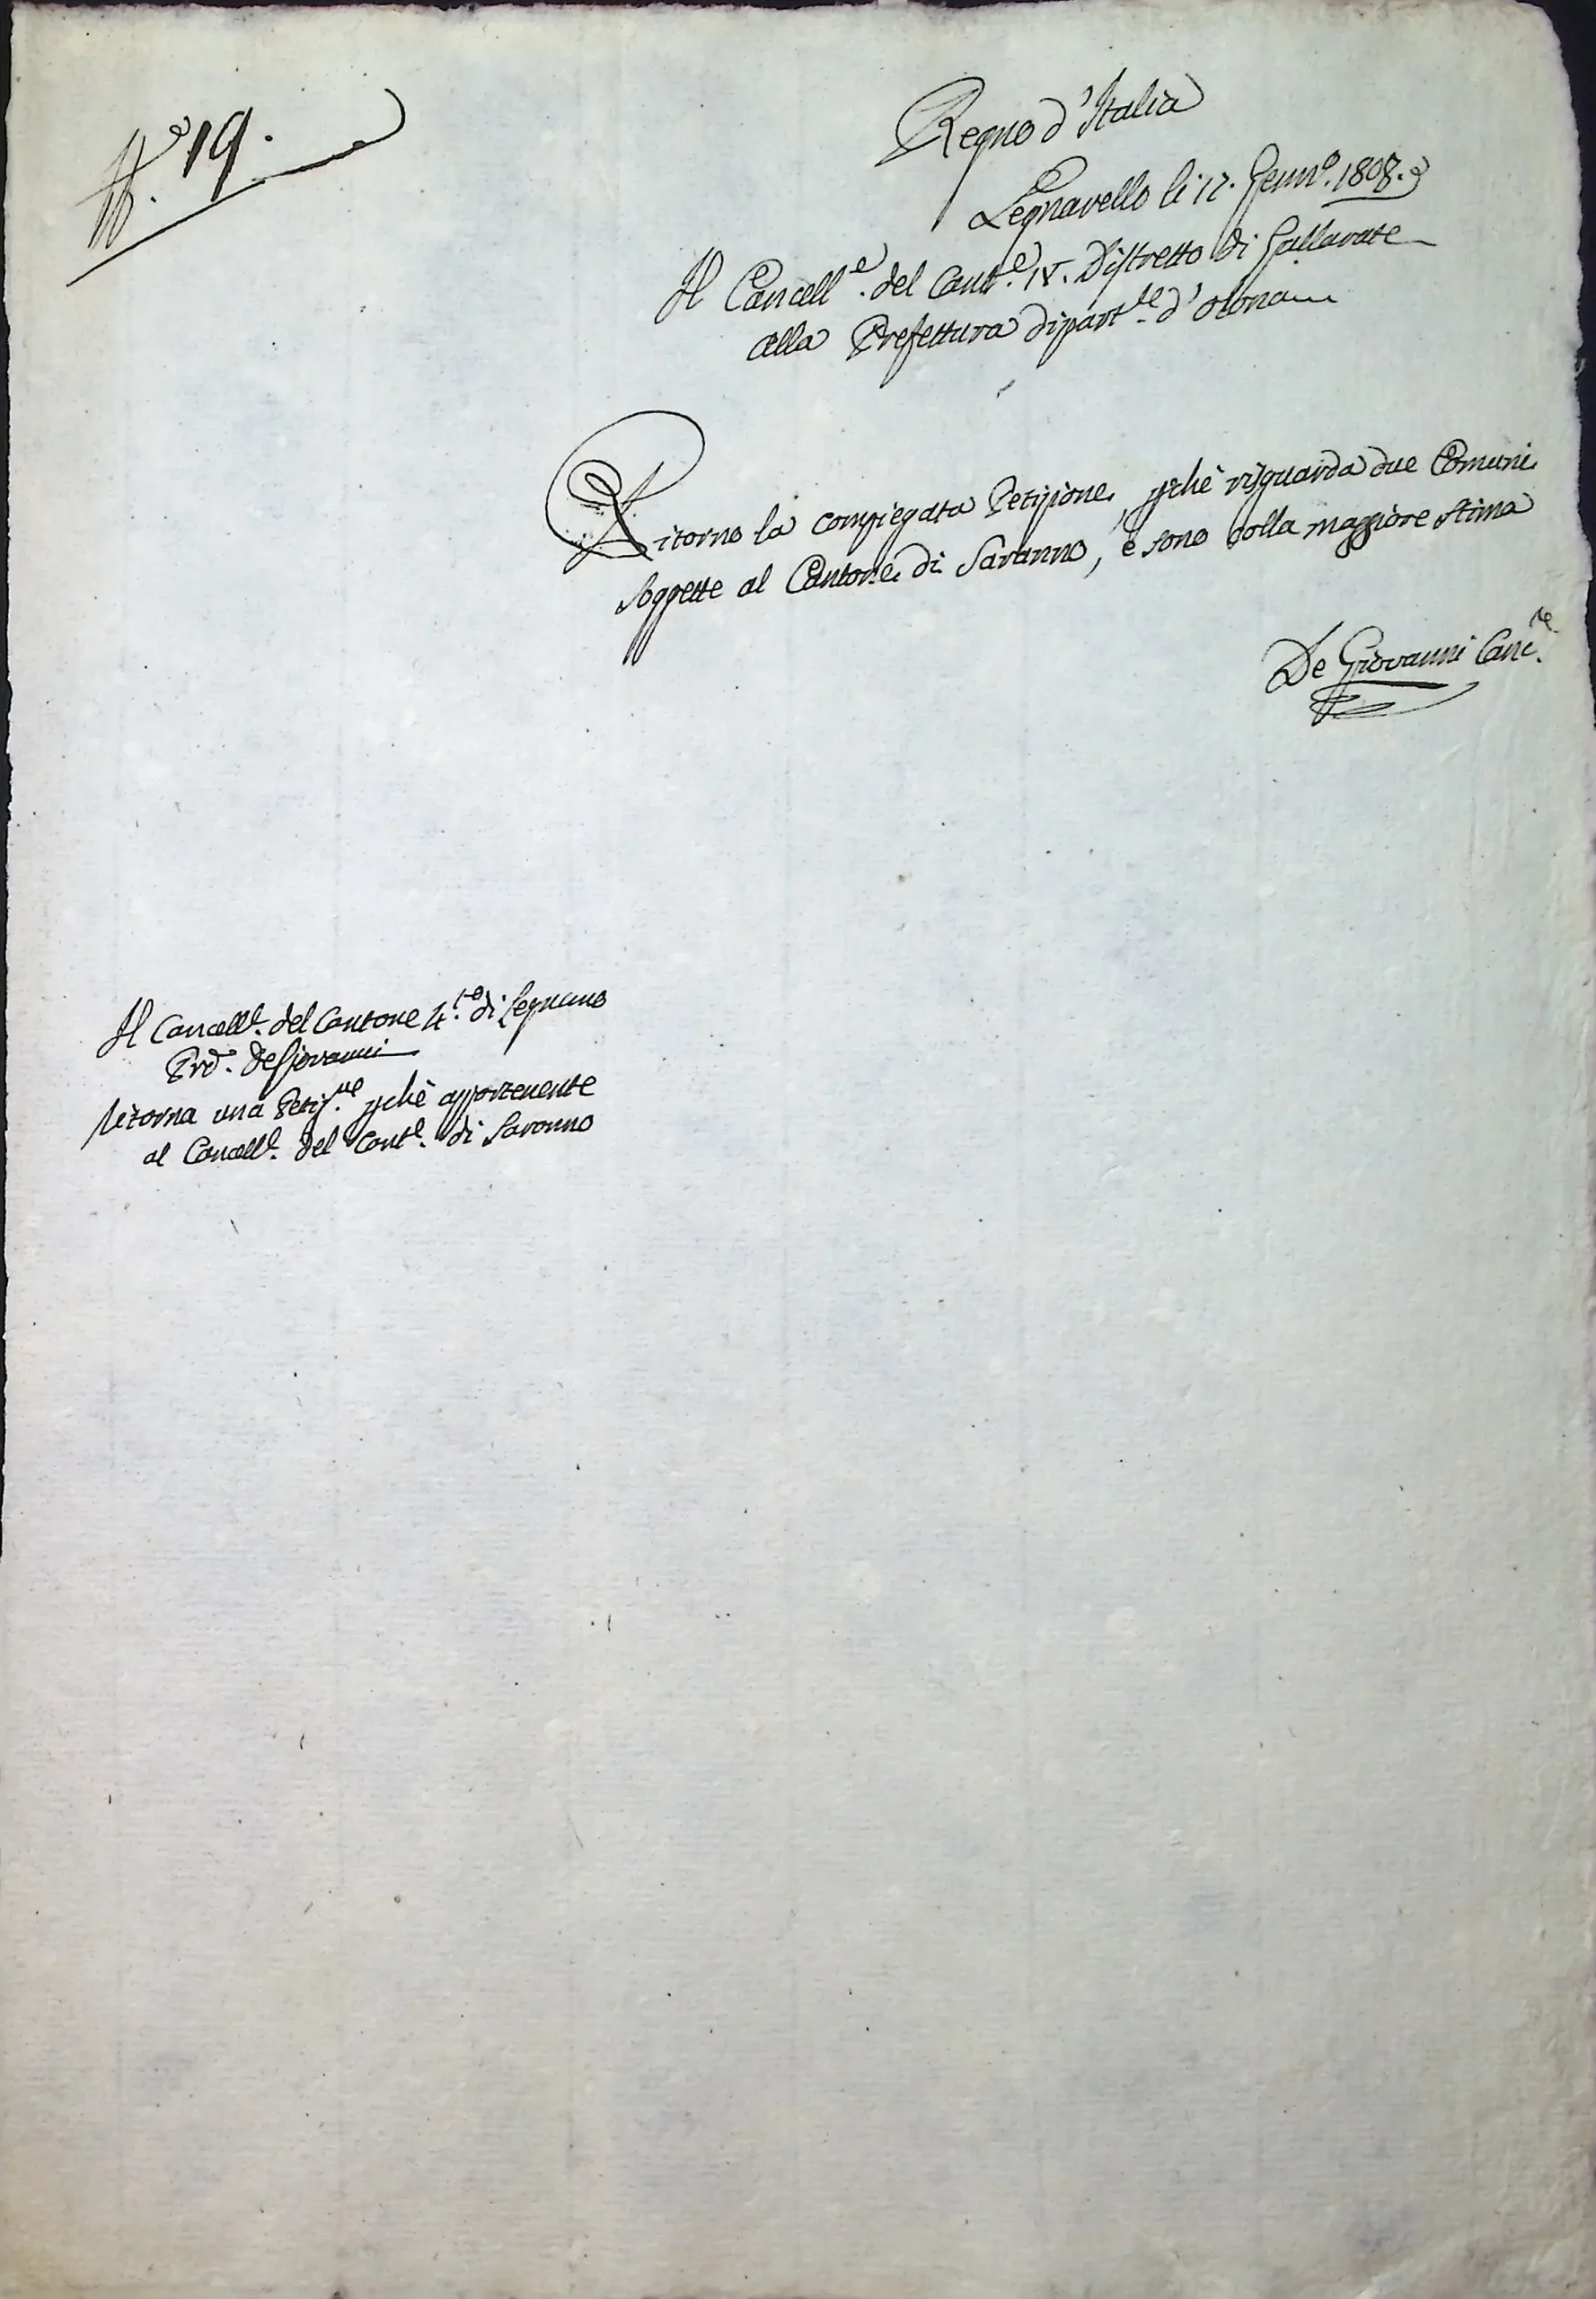 N.º 19.
Regno d'Italia
Legnarello li 12. Genn.º 1808.
Il Cancell.e del Cant.e IV. Distretto di Gallarate
alla Prefettura dipart.le d'Olona
Ritorno la compiegata Petizione, pchè risguarda due Comuni
soggette al Cantone di Saranno, e sono colla maggiore stima
De Giovanni Canc.re
Il Cancell.e del Cantone 4.to di Legnano
De Giovanni
Ritorna una Petiz.ne pchè appartenente
al Cancell.e del Cant.e di Saronno